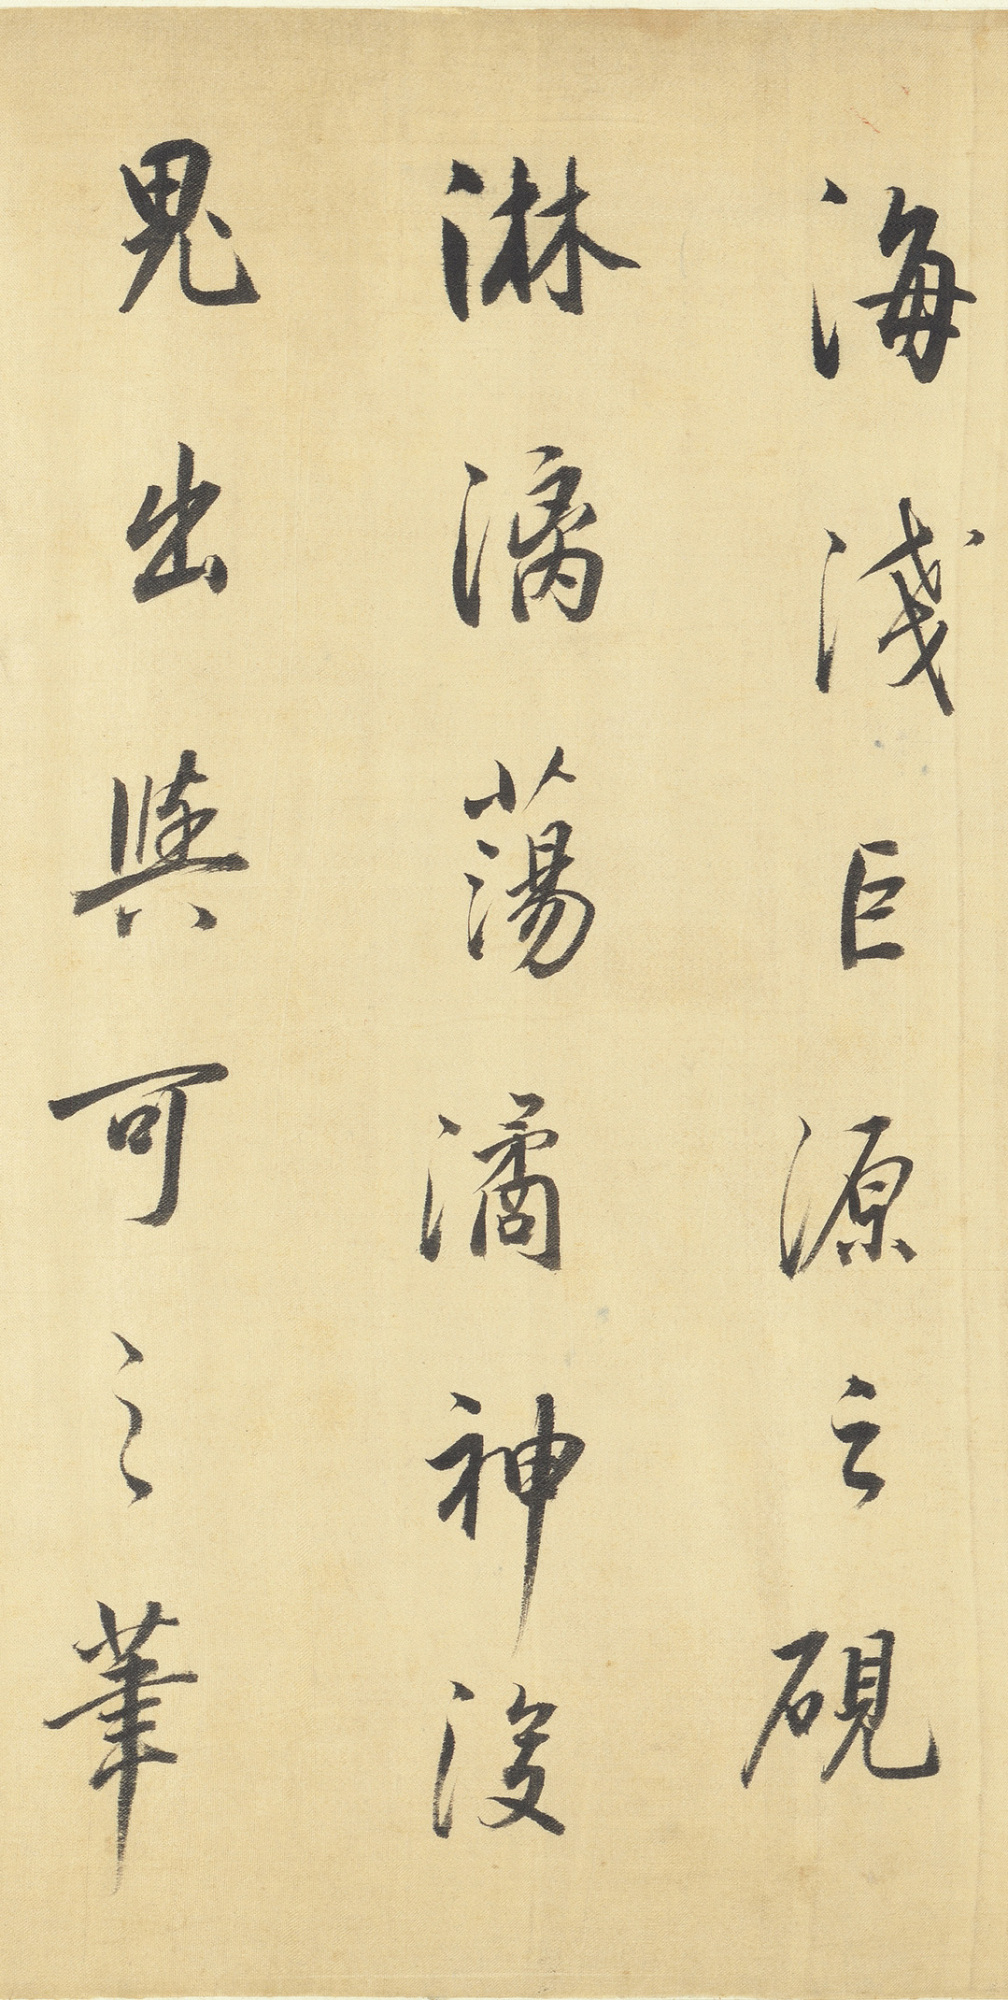 海淺巨源之硯
淋漓蕩潏神沒
鬼出與可之筆